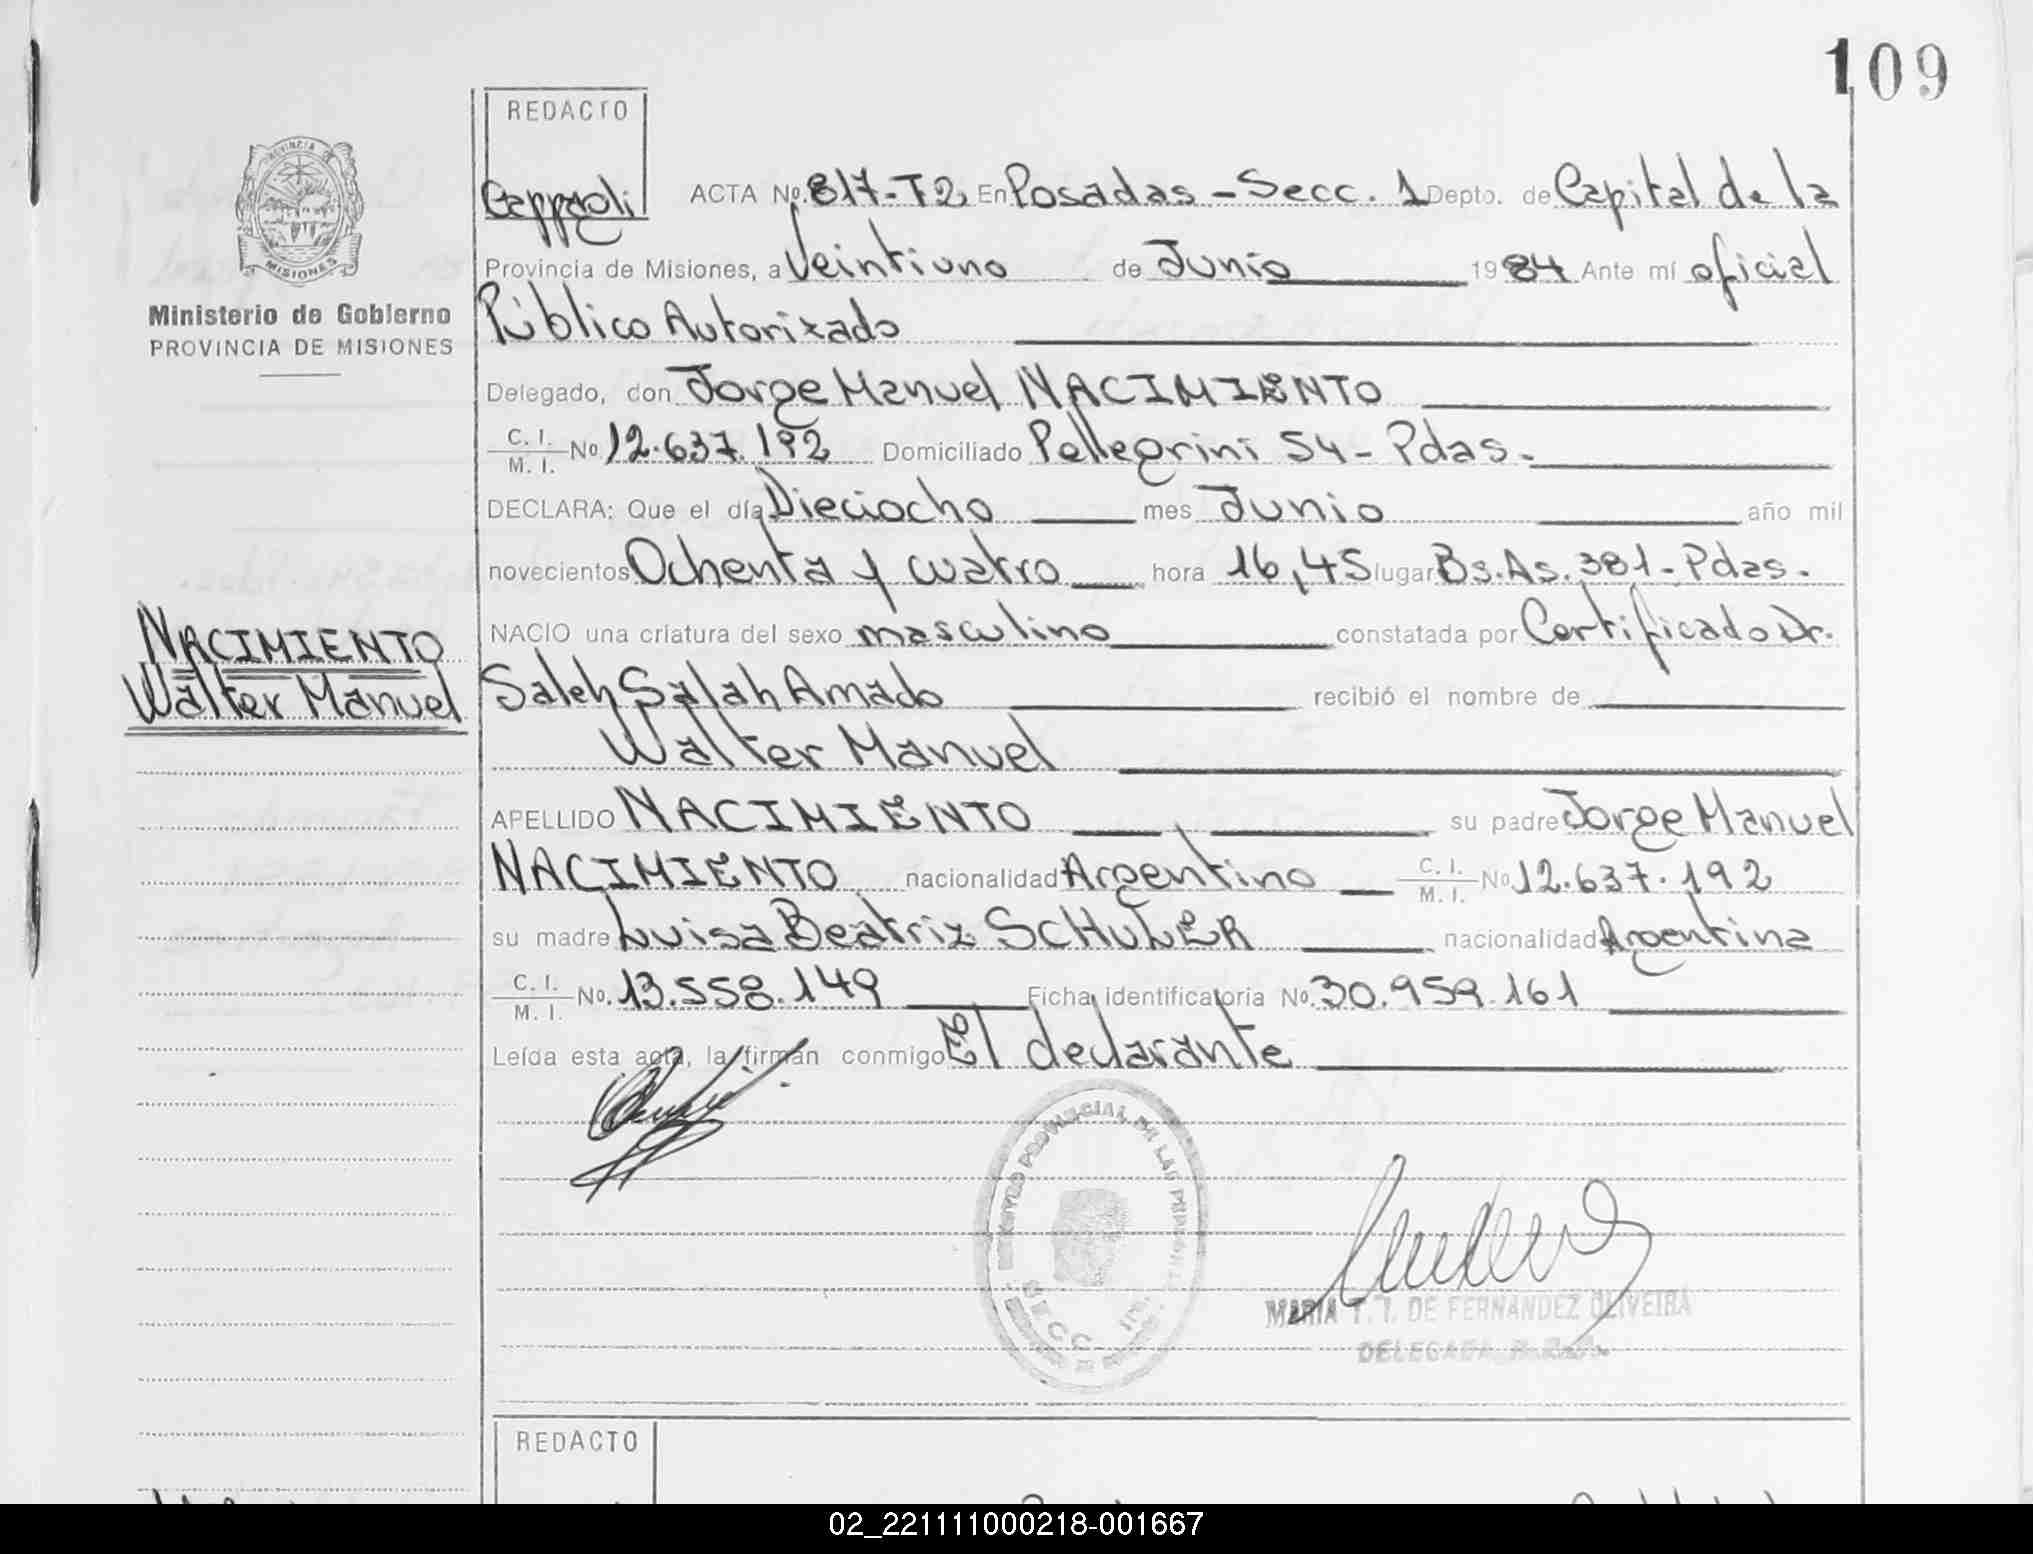 109
REDACTO
PROVINCIA DE
MISIONES
Ministerio de Gobierno
PROVINCIA DE MISIONES
ACTA No. 817-T2 En Posadas - Secc. 1 Depto. de Capital de la
Provincia de Misiones, a Veintiuno de Junio 1984 Ante mí oficial
Público Autorizado
Delegado, don Jorge Manuel NACIMIENTO
C. I. / M. I. No 12.637.192 Domiciliado Pellegrini 54 - Pdas.
DECLARA: Que el día Dieciocho mes Junio año mil
novecientos Ochenta y cuatro hora 16,45 lugar Bs. As. 381 - Pdas.
NACIO una criatura del sexo masculino constatada por Certificado Dr.
Saleh Salah Amado recibió el nombre de
Walter Manuel
APELLIDO NACIMIENTO su padre Jorge Manuel
NACIMIENTO nacionalidad Argentino C. I. / M. I. No 12.637.192
su madre Luisa Beatriz SCHULER nacionalidad Argentina
C. I. / M. I. No. 13.558.149 Ficha identificatoria No. 30.959.161
Leída esta acta, la firman conmigo El declarante
NACIMIENTO
Walter Manuel
PROVINCIAL DE LAS
SECC
MARIA T. T. DE FERNANDEZ OLIVEIRA
DELEGADA
REDACTO
02_221111000218-001667